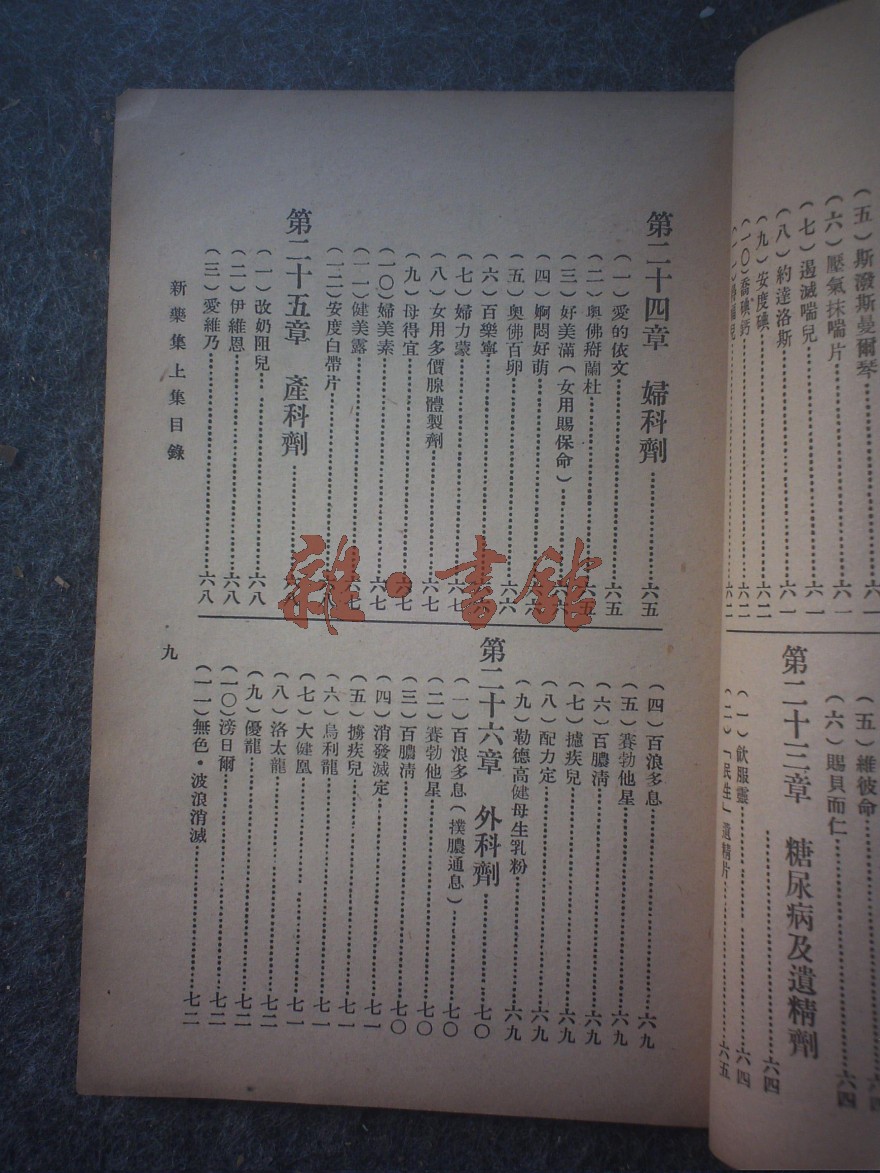 (五)斯潑斯曼爾琴 六一
(六)壓氣抹喘片 六一
(七)過滅喘兒 六一
(八)約達洛斯 六一
(九)安度碘 六二
(一〇)喬碘鈣 六二
(五)維彼命 六四
(六)賜貝而仁 六四
第二十三章 糖尿病及遺精劑 六四
(一)飲服靈 六四
(二)「民生」遺精片 六五
第二十四章 婦科劑 六五
(一)愛的依文 六五
(二)奥佛搿蘭杜 六五
(三)好美滿(女用賜保命) 六
(四)婀悶好萌 六
(五)奥佛百卵 六六
(六)百樂寧
(七)婦力蒙 六七
(八)女用多價腺體製劑 六七
(九)母得宜 六七
(一〇)婦美素 六七
(一一)健美露 七
(一二)安度白帶片 八
第二十五章 產科劑 六八
(一)改奶阻兒 六八
(二)伊維恩 六八
(三)愛維乃 六八
(四)百浪多息 六九
(五)賽勃他星 六九
(六)百膿清 六九
(七)攄疾兒 六九
(八)配力定 六九
(九)勒德高健母生乳粉 六九
第二十六章 外科劑 七〇
(一)百浪多息(撲膿通息) 七〇
(二)賽勃他星 七〇
(三)百膿清 七〇
(四)消發滅定 七一
(五)擄疾兒 七一
(六)烏利龍 七一
(七)大健凰 七一
(八)洛太龍 七二
(九)優龍 七二
(一〇)滂日爾 七二
(一一)無色·波浪消滅 七二
新藥集上集目錄
九
雜·書館